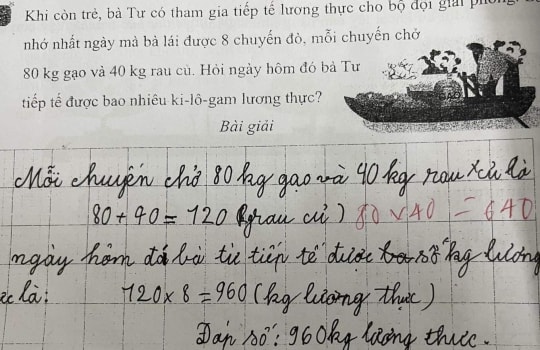 Khi còn trẻ, bà Tư có tham gia tiếp tế lương thực cho bộ đội giải phóng.
nhớ nhất ngày mà bà lái được 8 chuyến đò, mỗi chuyến chở
80 kg gạo và 40 kg rau củ. Hỏi ngày hôm đó bà Tư
tiếp tế được bao nhiêu ki-lô-gam lương thực?
GẠO
Bài giải
Mỗi chuyến chở 80 kg gạo và 40 kg rau củ là
80 + 40 = 120 (rau củ) 80 x 40 = 640
ngày hôm đó bà tư tiếp tế được số kg lương
là:
120 x 8 = 960 (kg lương thực)
Đáp số: 960kg lương thực.